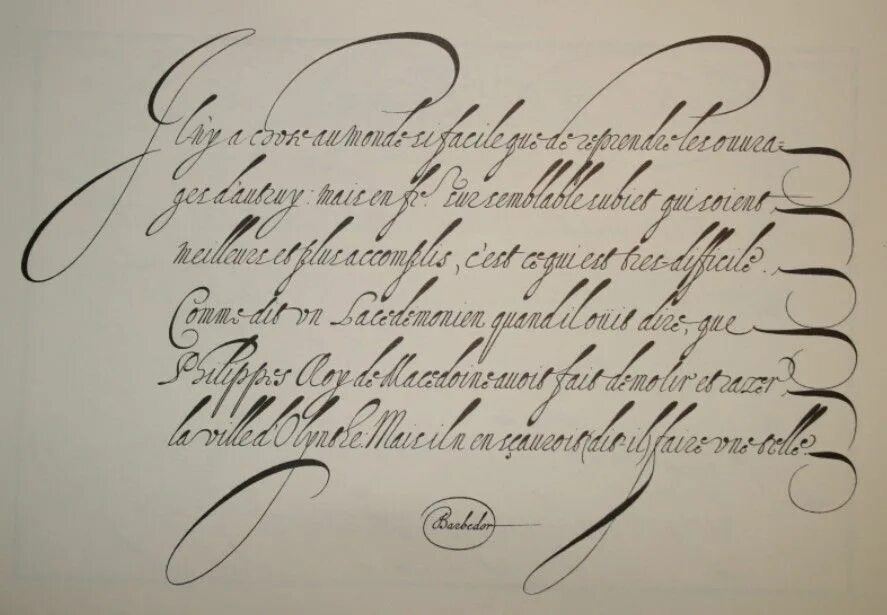 Il n'y a chose au monde si facile que de reprendre les ouura-
ges d'autruy: mais en fre. sur semblable subiet qui soient
meilleurs et plus accomplis, c'est ce qui est tres difficile.
Comme dit vn Lacedemonien quand il ouit dire, que
Philippes Roy de Macedoine auoit fait demolir et razer
la ville d'Olynthe. Mais il n'en sçauroit (dit-il) faire vne telle.
Barbedor